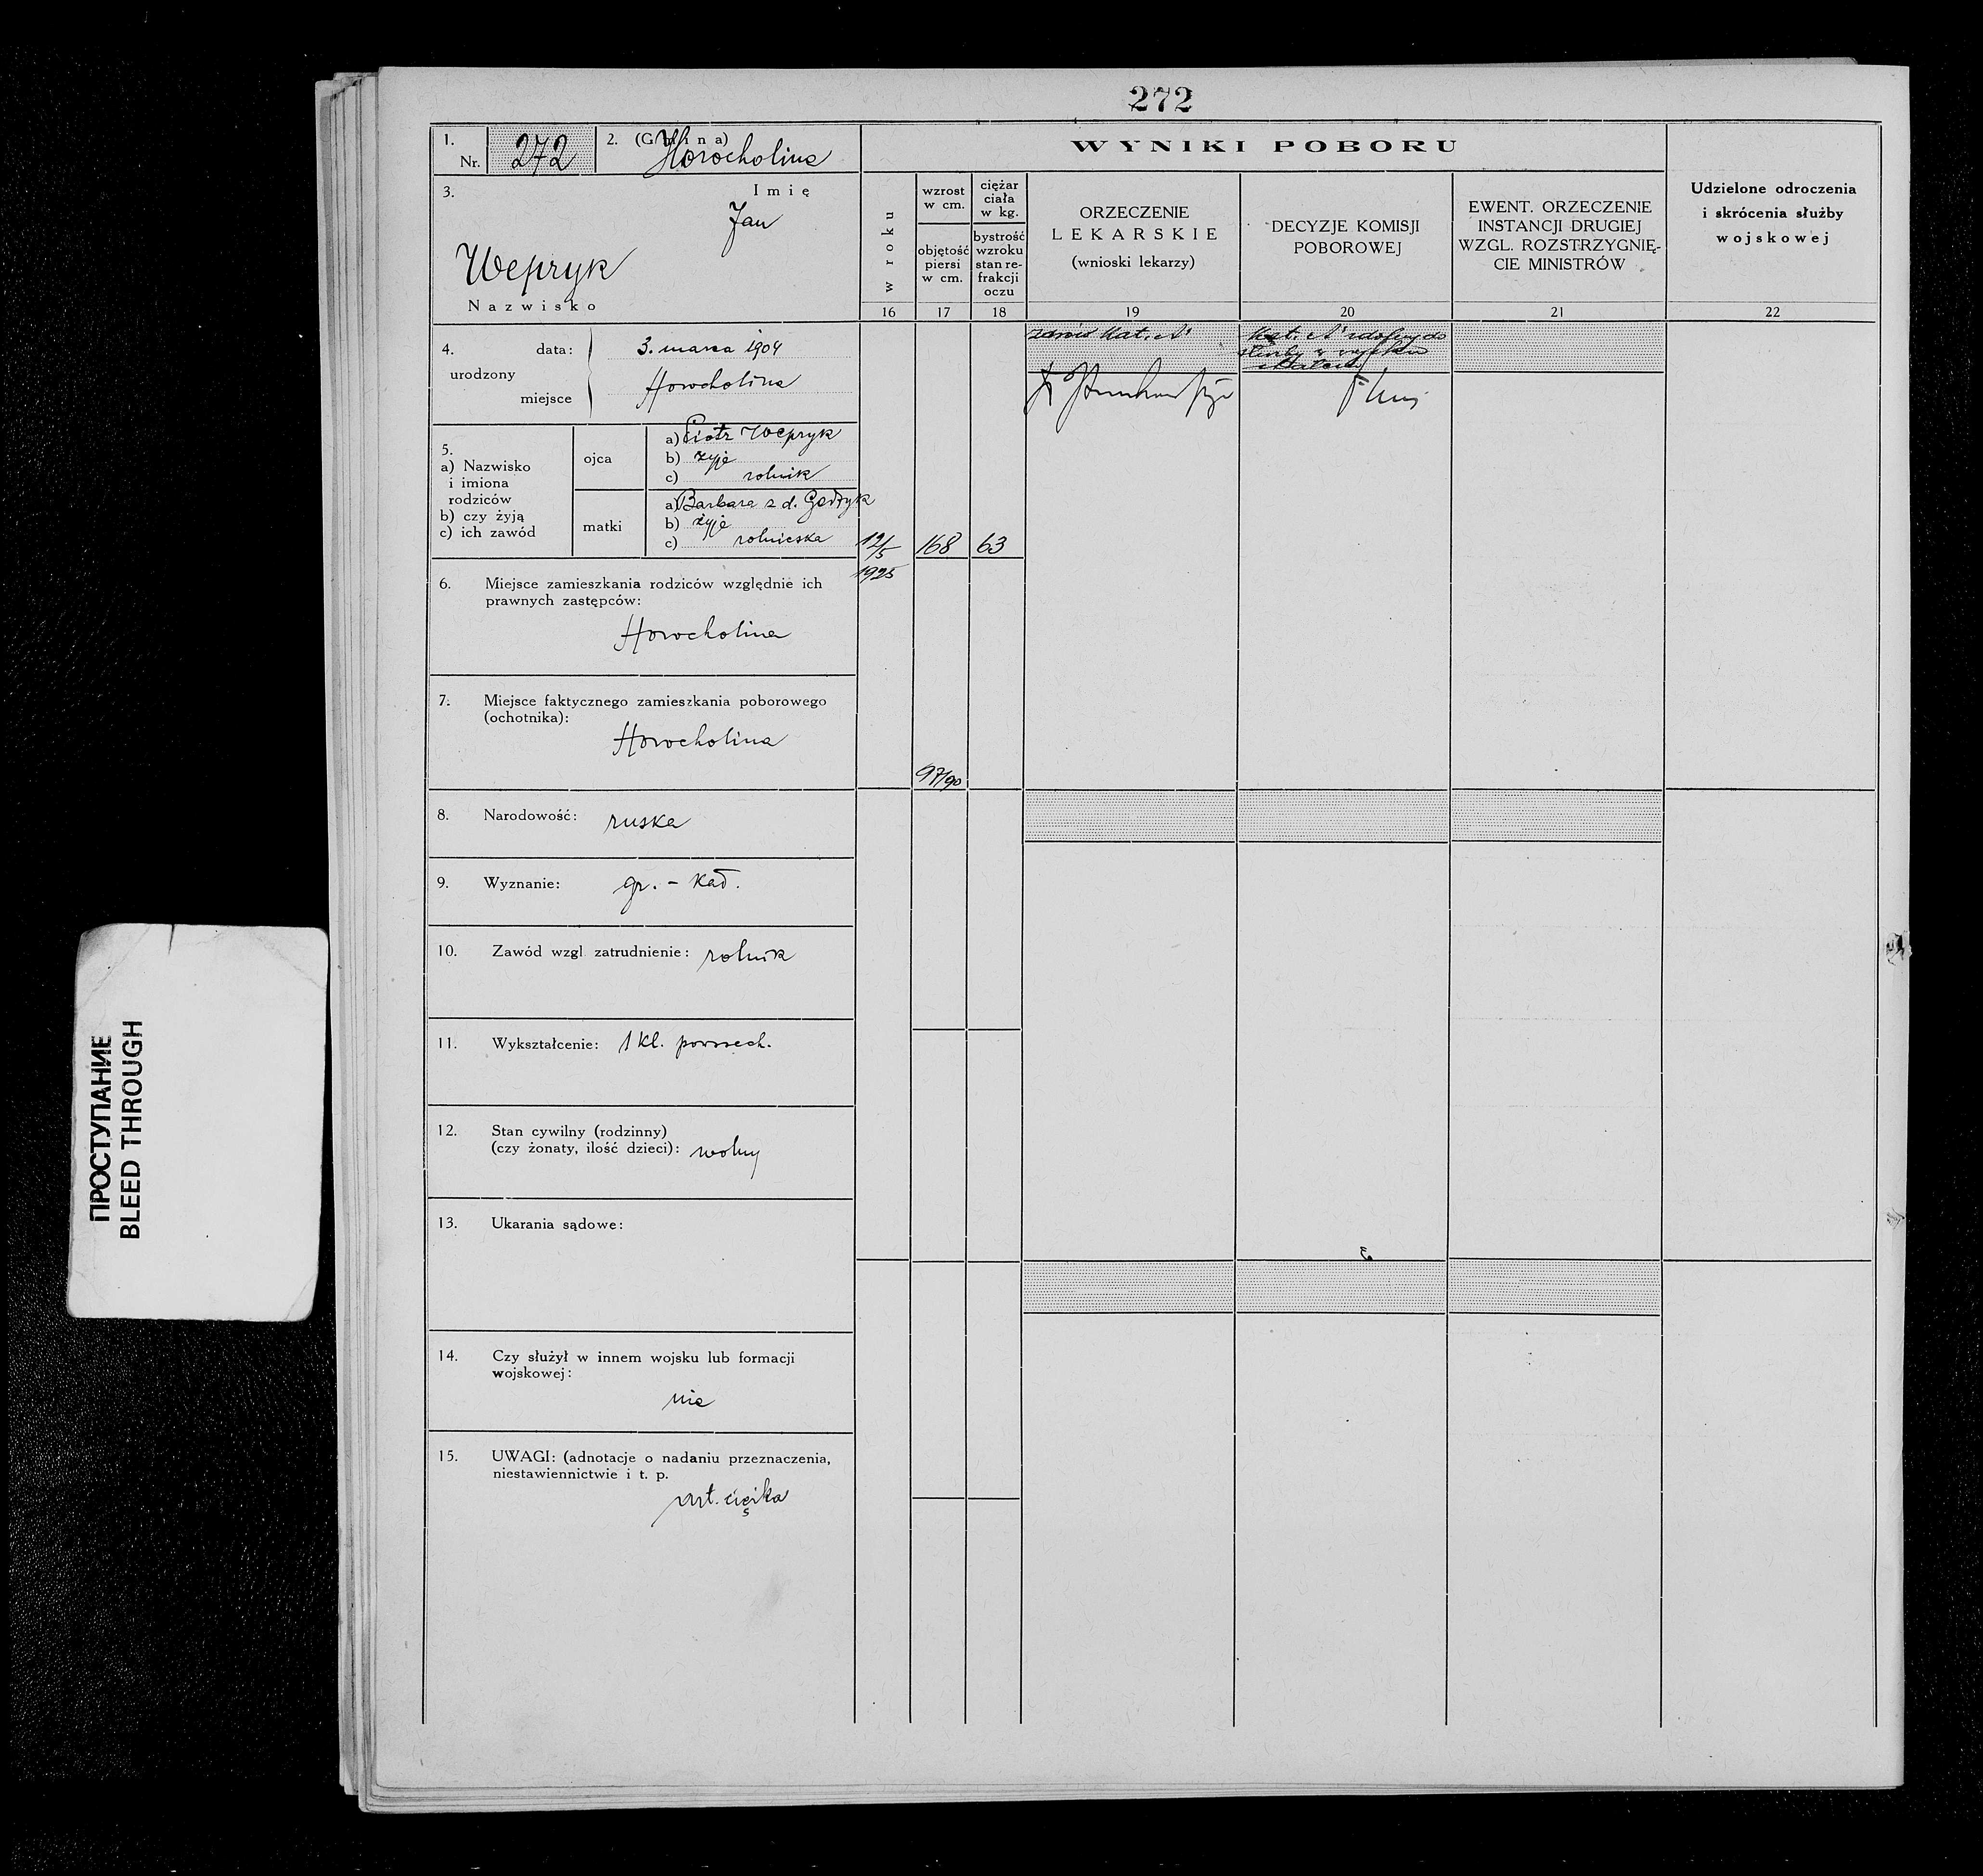 272
1.
Nr. 272
2. (Gmina) Horocholina
3.
Imię
Jan
Wepryk
Nazwisko
4. urodzony
data: 3. marca 1904
miejsce Horocholina
5.
a) Nazwisko
i imiona
rodziców
b) czy żyją
c) ich zawód
ojca
a) Piotr Wepryk
b) żyje
c) rolnik
matki
a) Barbara z d.
b) żyje
c) rolniczka
6. Miejsce zamieszkania rodziców względnie ich
prawnych zastępców:
Horocholina
7. Miejsce faktycznego zamieszkania poborowego
(ochotnika):
Horocholina
8. Narodowość: ruska
9. Wyznanie: gr. - kat.
10. Zawód wzgl. zatrudnienie: rolnik
11. Wykształcenie: 1 kl. powszech.
12. Stan cywilny (rodzinny)
(czy żonaty, ilość dzieci): wolny
13. Ukarania sądowe:
14. Czy służył w innem wojsku lub formacji
wojskowej:
nie
15. UWAGI: (adnotacje o nadaniu przeznaczenia,
niestawiennictwie i t. p.
art. ciężka
WYNIKI POBORU
w roku
16
12/5
1925
wzrost
w cm.
objętość
piersi
w cm.
17
168
97/90
ciężar
ciała
w kg.
bystrość
wzroku
stan re-
frakcji
oczu
18
63
ORZECZENIE
LEKARSKIE
(wnioski lekarzy)
19
kat. A
DECYZJE KOMISJI
POBOROWEJ
20
kat. A zdolny do
służby z
EWENT. ORZECZENIE
INSTANCJI DRUGIEJ
WZGL. ROZSTRZYGNIĘ-
CIE MINISTRÓW
21
Udzielone odroczenia
i skrócenia służby
wojskowej
22
ПРОСТУПАНИЕ
BLEED THROUGH